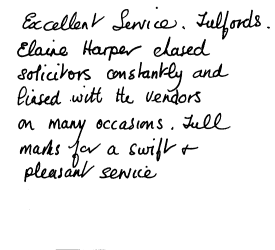 Excellent Service. Fulfords.
Elaine Harper chased
solicitors constantly and
liased with the vendors
on many occasions. Full
marks for a swift +
pleasant service